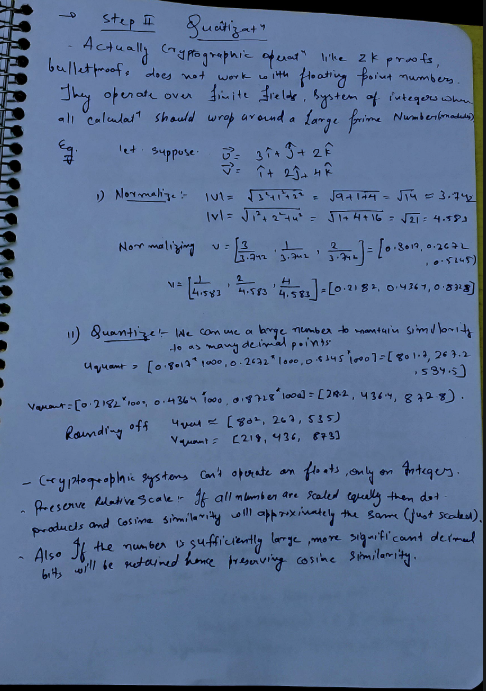 → Step II Quatizatⁿ
- Actually Cryptographic operatⁿ like ZK proofs,
bulletproofs does not work with floating point numbers.
They operate over finite fields, System of integers where
all calculatⁿ should wrap around a large prime Number (modulus)
Eg. let suppose. U⃗ = 3î + ĵ + 2k̂
V⃗ = î + 2ĵ + 4k̂
i) Normalize :- |U| = √3²+1²+2² = √9+1+4 = √14 = 3.742
|V| = √1²+2²+4² = √1+4+16 = √21 = 4.583
Normalizing U = [3/3.742, 1/3.742, 2/3.742] = [0.8017, 0.2672
, 0.5345]
V = [1/4.583, 2/4.583, 4/4.583] = [0.2182, 0.4364, 0.8728]
II) Quantize :- We can use a large number to maintain similarity
to as many decimal points.
Uquant = [0.8017*1000, 0.2672*1000, 0.5345*1000] = [801.7, 267.2
, 534.5]
Vquant = [0.2182*1000, 0.4364*1000, 0.8728*1000] = [218.2, 436.4, 872.8).
Rounding off Uquant = [802, 267, 535)
Vquant = [218, 436, 873]
- Cryptographic systems Can't operate on floats, only on Integers.
- Preserve Relative Scale :- If all number are scaled equally then dot
products and cosine similarity will approximately the same (just scaled).
- Also If the number is sufficiently large, more significant decimal
bits will be retained hence preserving cosine similarity.